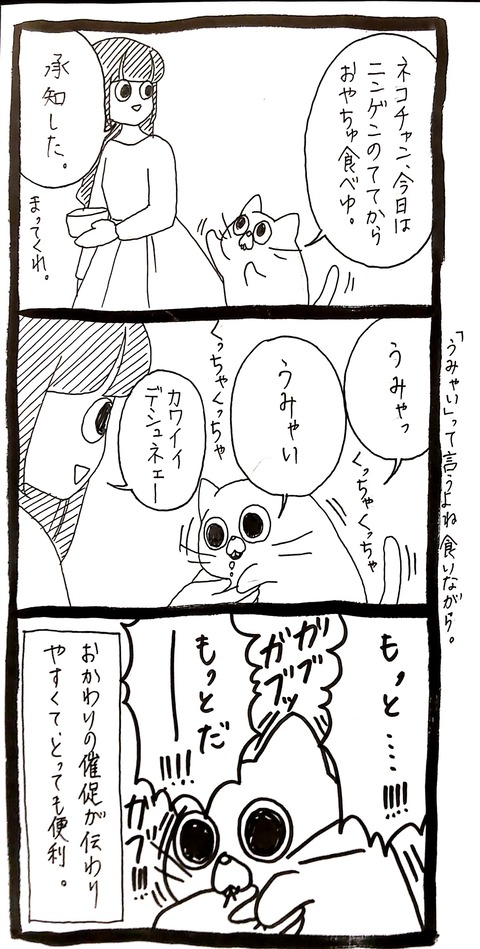 ネコチャン、今日は
ニンゲンのててから
おやちゅ食べゆ。
承知した。
まってくれ。
「うみゃい」って言うよね食いながら。
うみゃっ
くっちゃくっちゃ
うみゃい
くっちゃくっちゃ
カワイイ
デシュネェー
もっと……!!!!
ガブ
ガブッ
もっとだ
――!!!!
ガブ!!!
おかわりの催促が伝わり
やすくて、とっても便利。